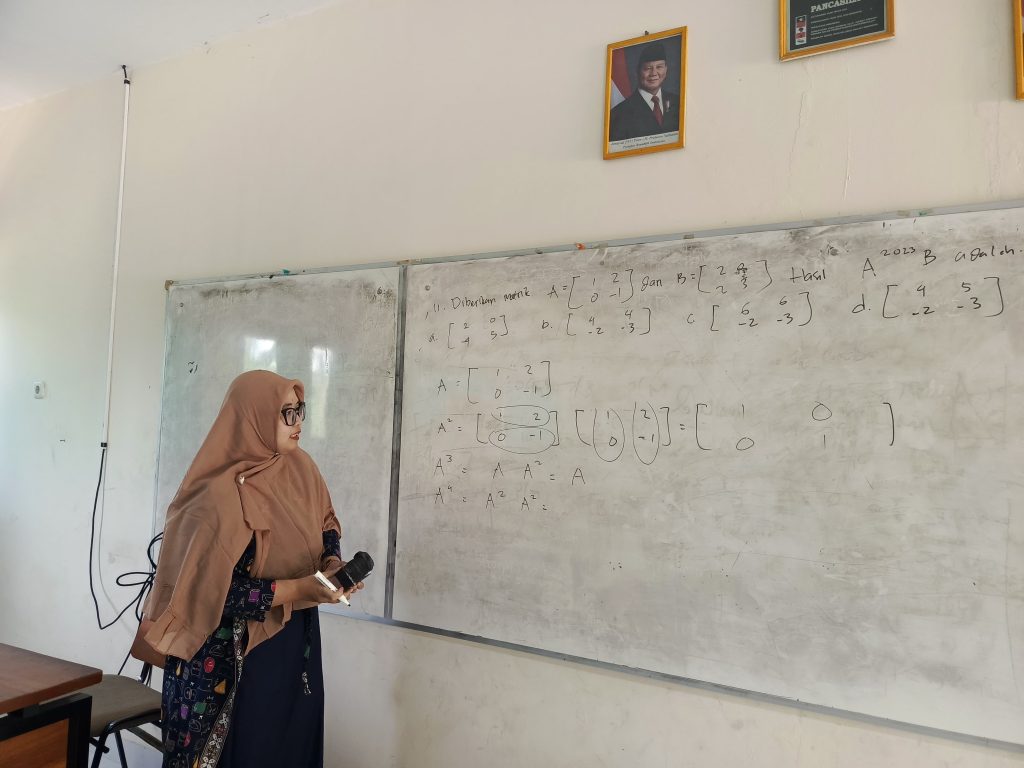 PANCASILA
11. Diberikan matrik A = [ 1 2 / 0 -1 ] dan B = [ 2 / 2 3 ] Hasil A^2023 B adalah.
a. [ 2 0 / 4 5 ] b. [ 4 4 / -2 -3 ] c. [ 6 6 / -2 -3 ] d. [ 4 5 / -2 -3 ]
A = [ 1 2 / 0 -1 ]
A² = [ 1 2 / 0 -1 ] [ 1 2 / 0 -1 ] = [ 1 0 / 0 1 ]
A³ = A A² = A
A⁴ = A² A² =